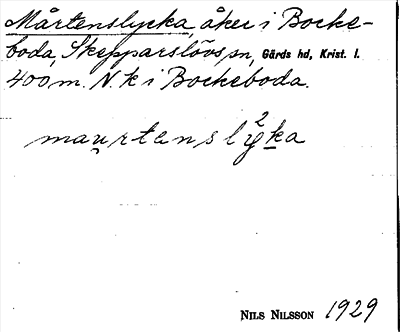 Mårtenslycka, åker i Bocke-
boda, Skepparslövs sn, Gärds hd, Krist. l.
400 m. N. k i Bockeboda.
mau̯rtensly²ka
NILS NILSSON 1929